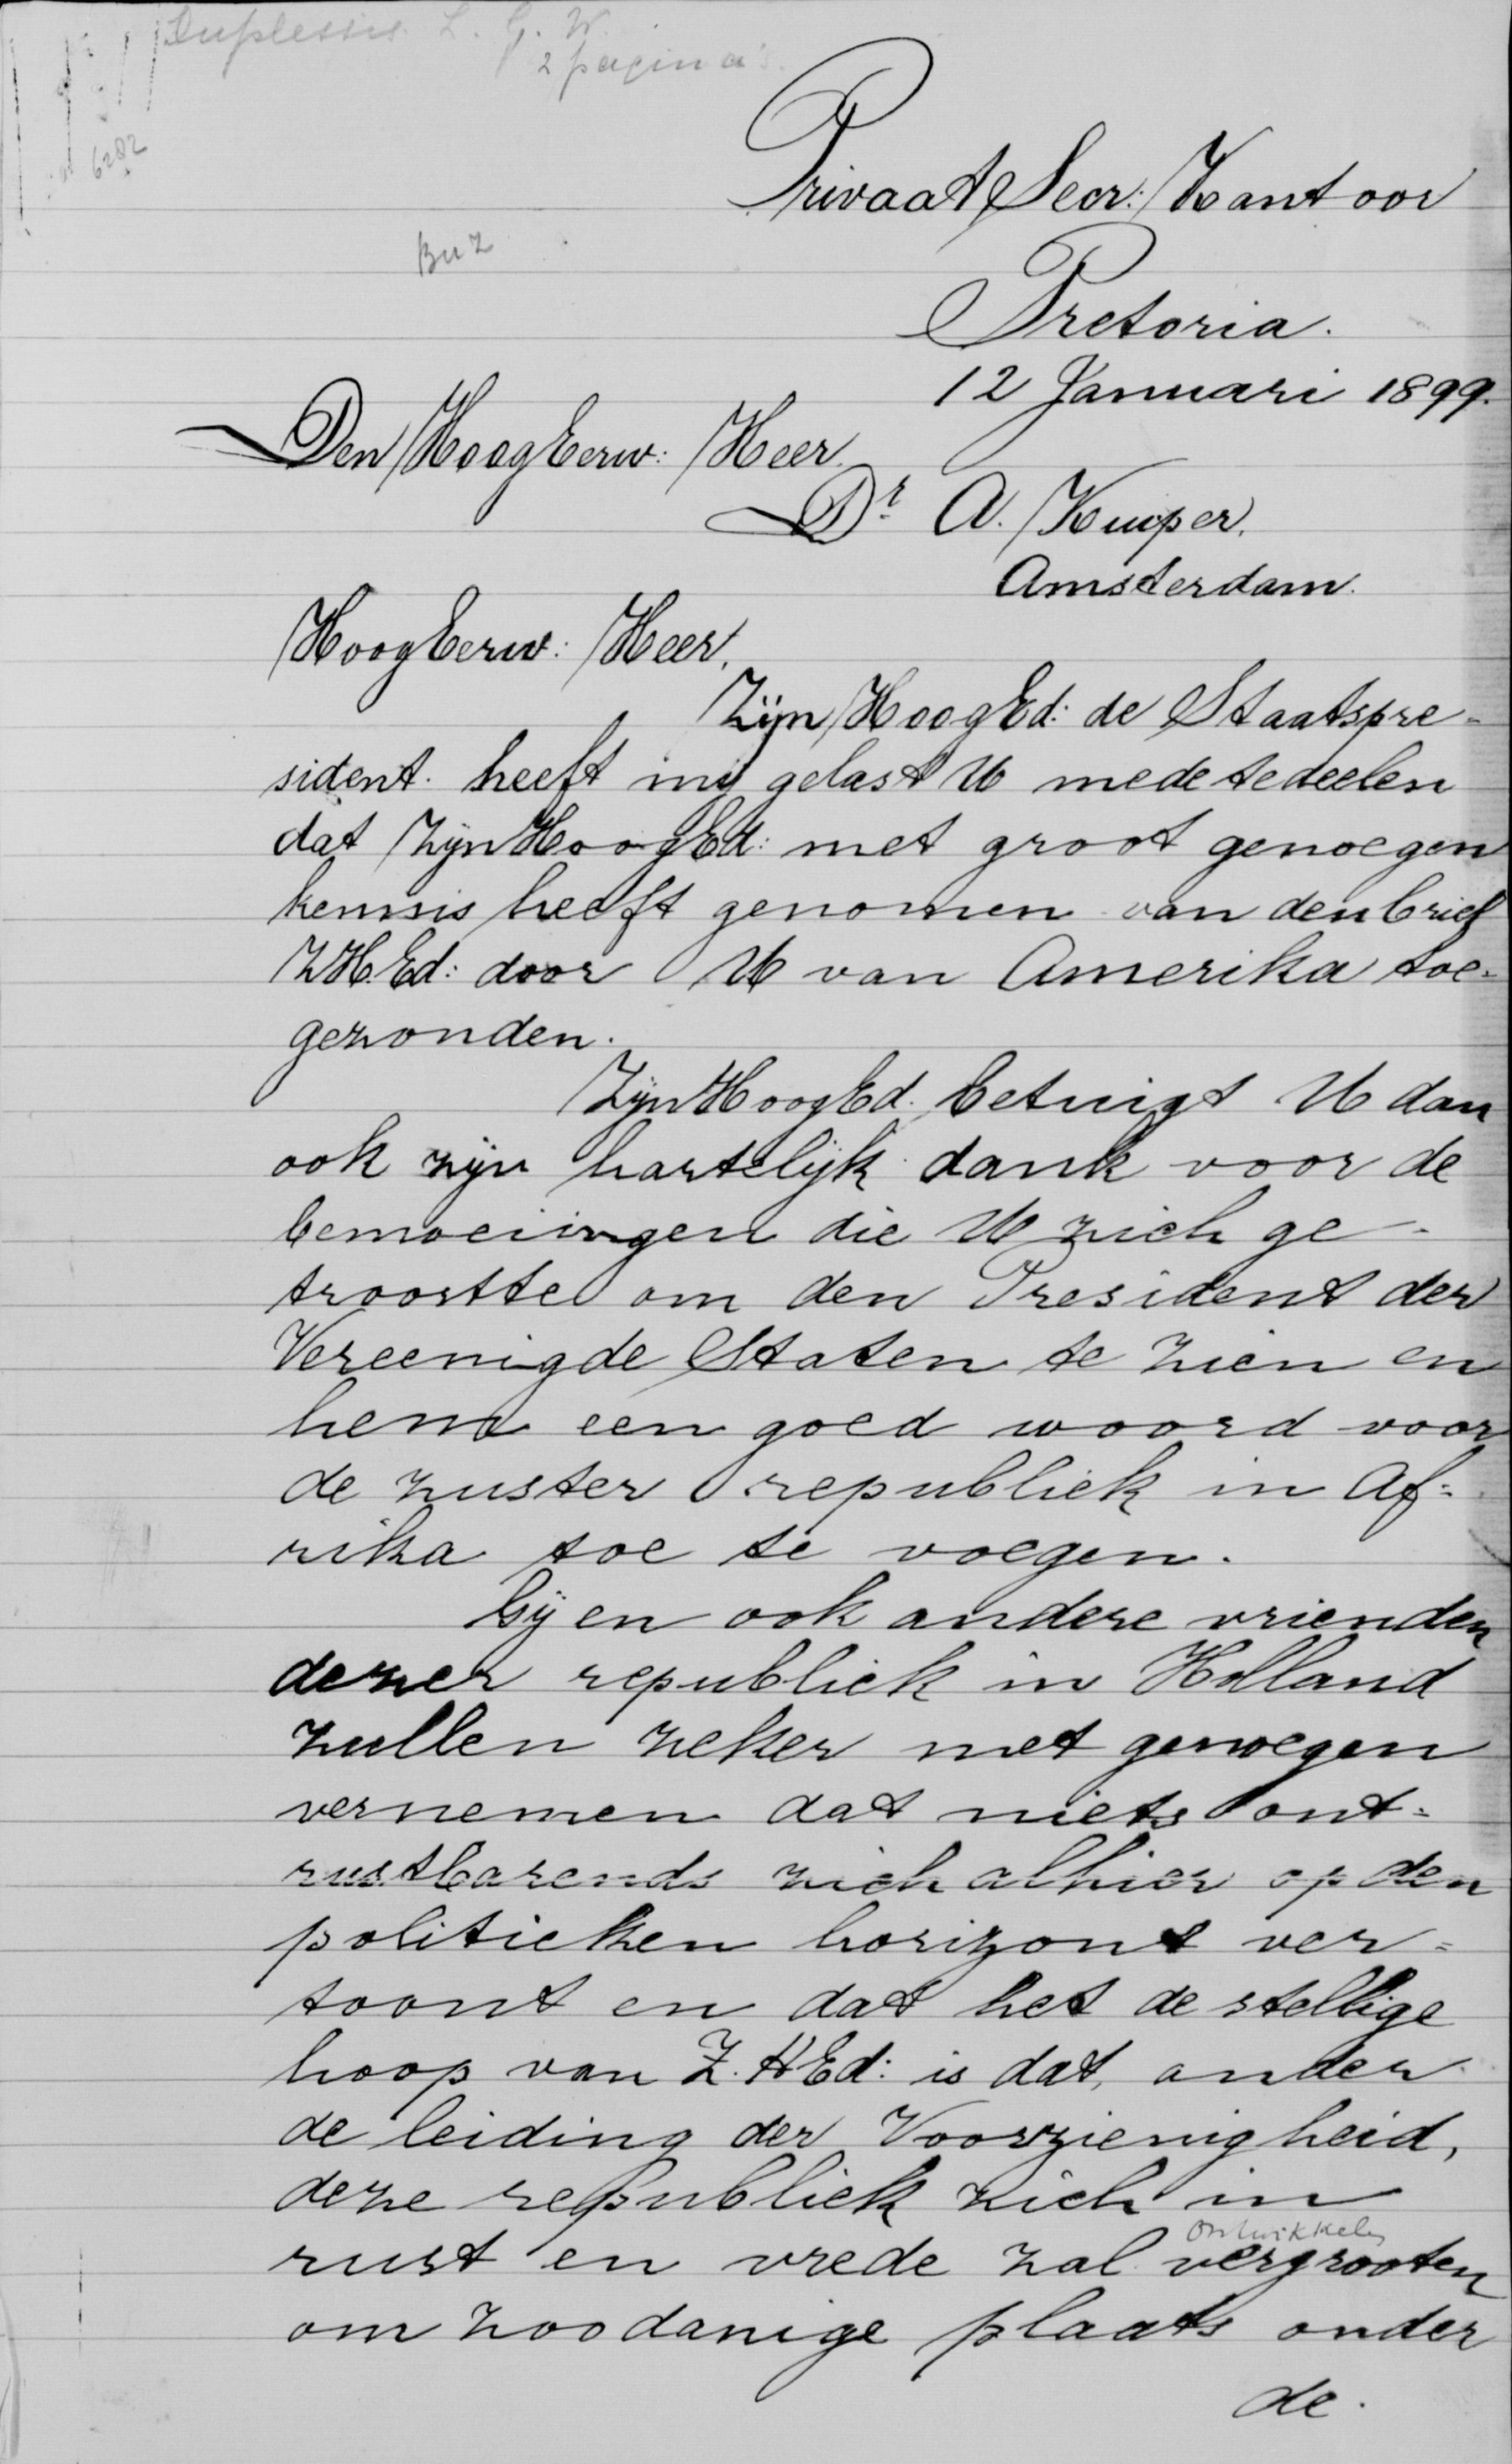 Duplessis L. G. W.
2 pagina's.
6282
BuZ
Privaat Secr: Kantoor
Pretoria.
12 Januari 1899.
Den HoogEerw: Heer.
Dr A. Kuiper.
Amsterdam.
HoogEerw: Heer,
Zijn HoogEd: de Staatspre-
sident heeft mij gelast U mede te deelen
dat Zijn HoogEd: met groot genoegen
kennis heeft genomen van den brief
ZH.Ed: door U van Amerika toe-
gezonden.
Zijn HoogEd. betuigt U dan
ook zijn hartelijk dank voor de
bemoeiingen die U zich ge-
troostte om den President der
Vereenigde Staten te zien en
hem een goed woord voor
de zuster republiek in Af-
rika toe te voegen.
Gij en ook andere vrienden
dezer republiek in Holland
zullen zeker met genoegen
vernemen dat niets ont-
rustbarends zich alhier op den
politieken horizont ver-
toont en dat het de stellige
hoop van Z.HEd: is dat, onder
de leiding der Voorzienigheid,
deze republiek zich in
ontwikkelen
rust en vrede zal vergrooten
om zoodanige plaats onder
de.